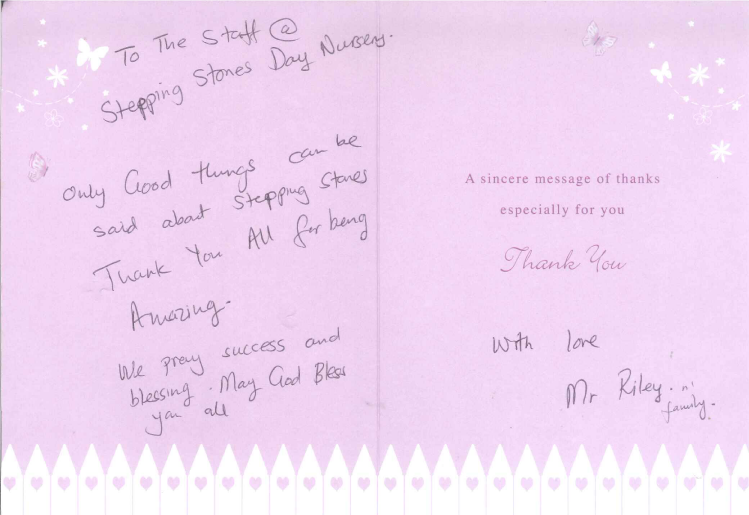 To The Staff @
Stepping Stones Day Nursery.
Only Good things can be
said about Stepping Stones
Thank You All for being
Amazing.
We pray success and
blessing. May God Bless
you all
A sincere message of thanks
especially for you
Thank You
With love
Mr Riley. n'
family.